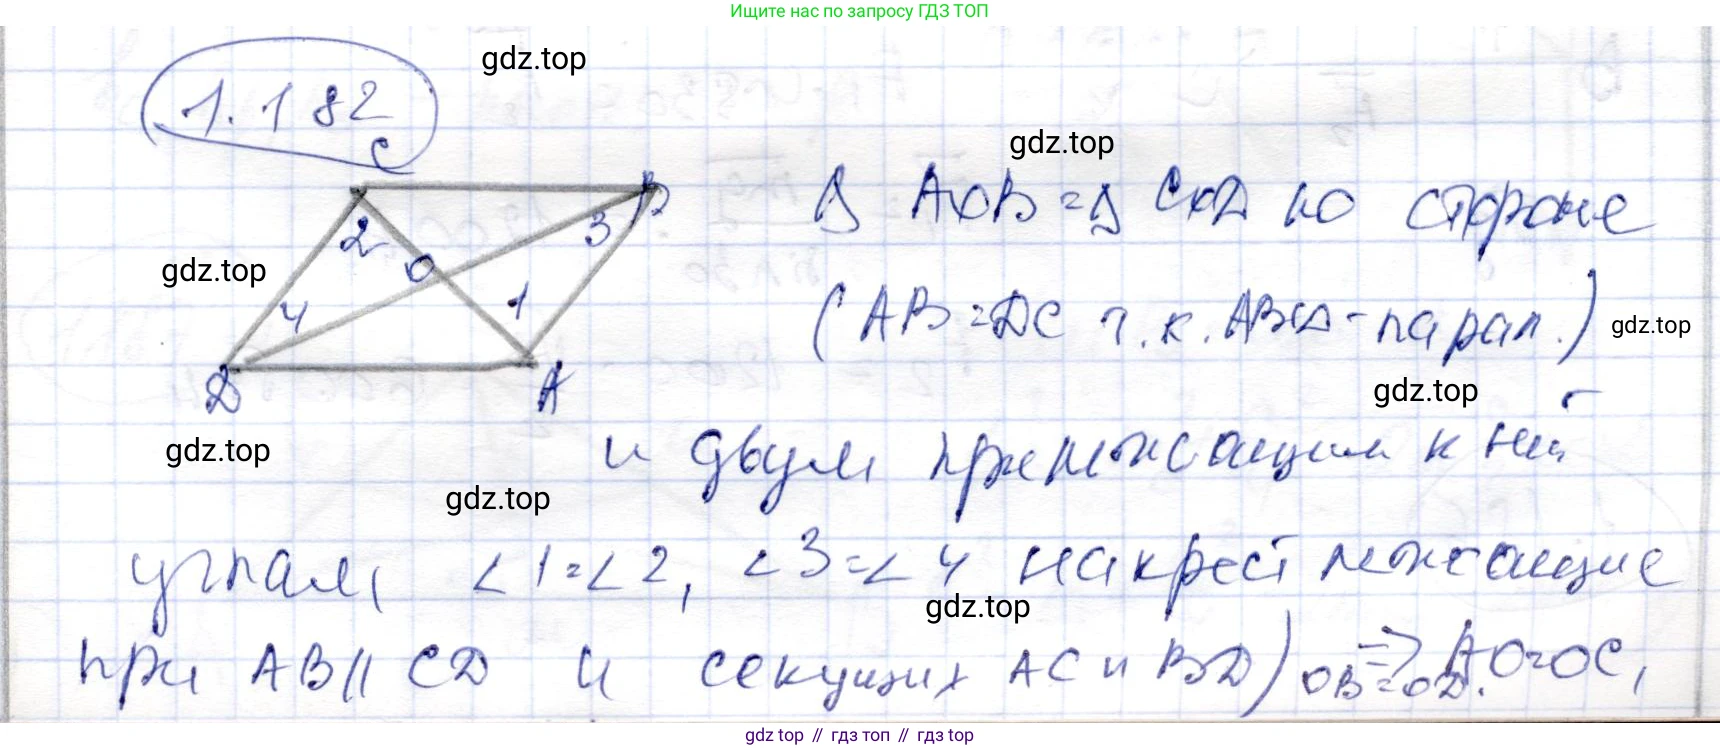 Ищите нас по запросу ГДЗ ТОП
gdz.top
1.182
gdz.top
C
B
Δ AOB = Δ COD по стороне
2
3
O
gdz.top
4
1
(AB = DC т.к. ABCD - парал.)
gdz.top
D
A
gdz.top
и двум прилежащим к ней
gdz.top
gdz.top
углам, ∠1=∠2, ∠3=∠4 накрест лежащие
gdz.top
при AB || CD и секущих AC и BD) => AO=OC,
OB=OD.
gdz.top // гдз топ // гдз top